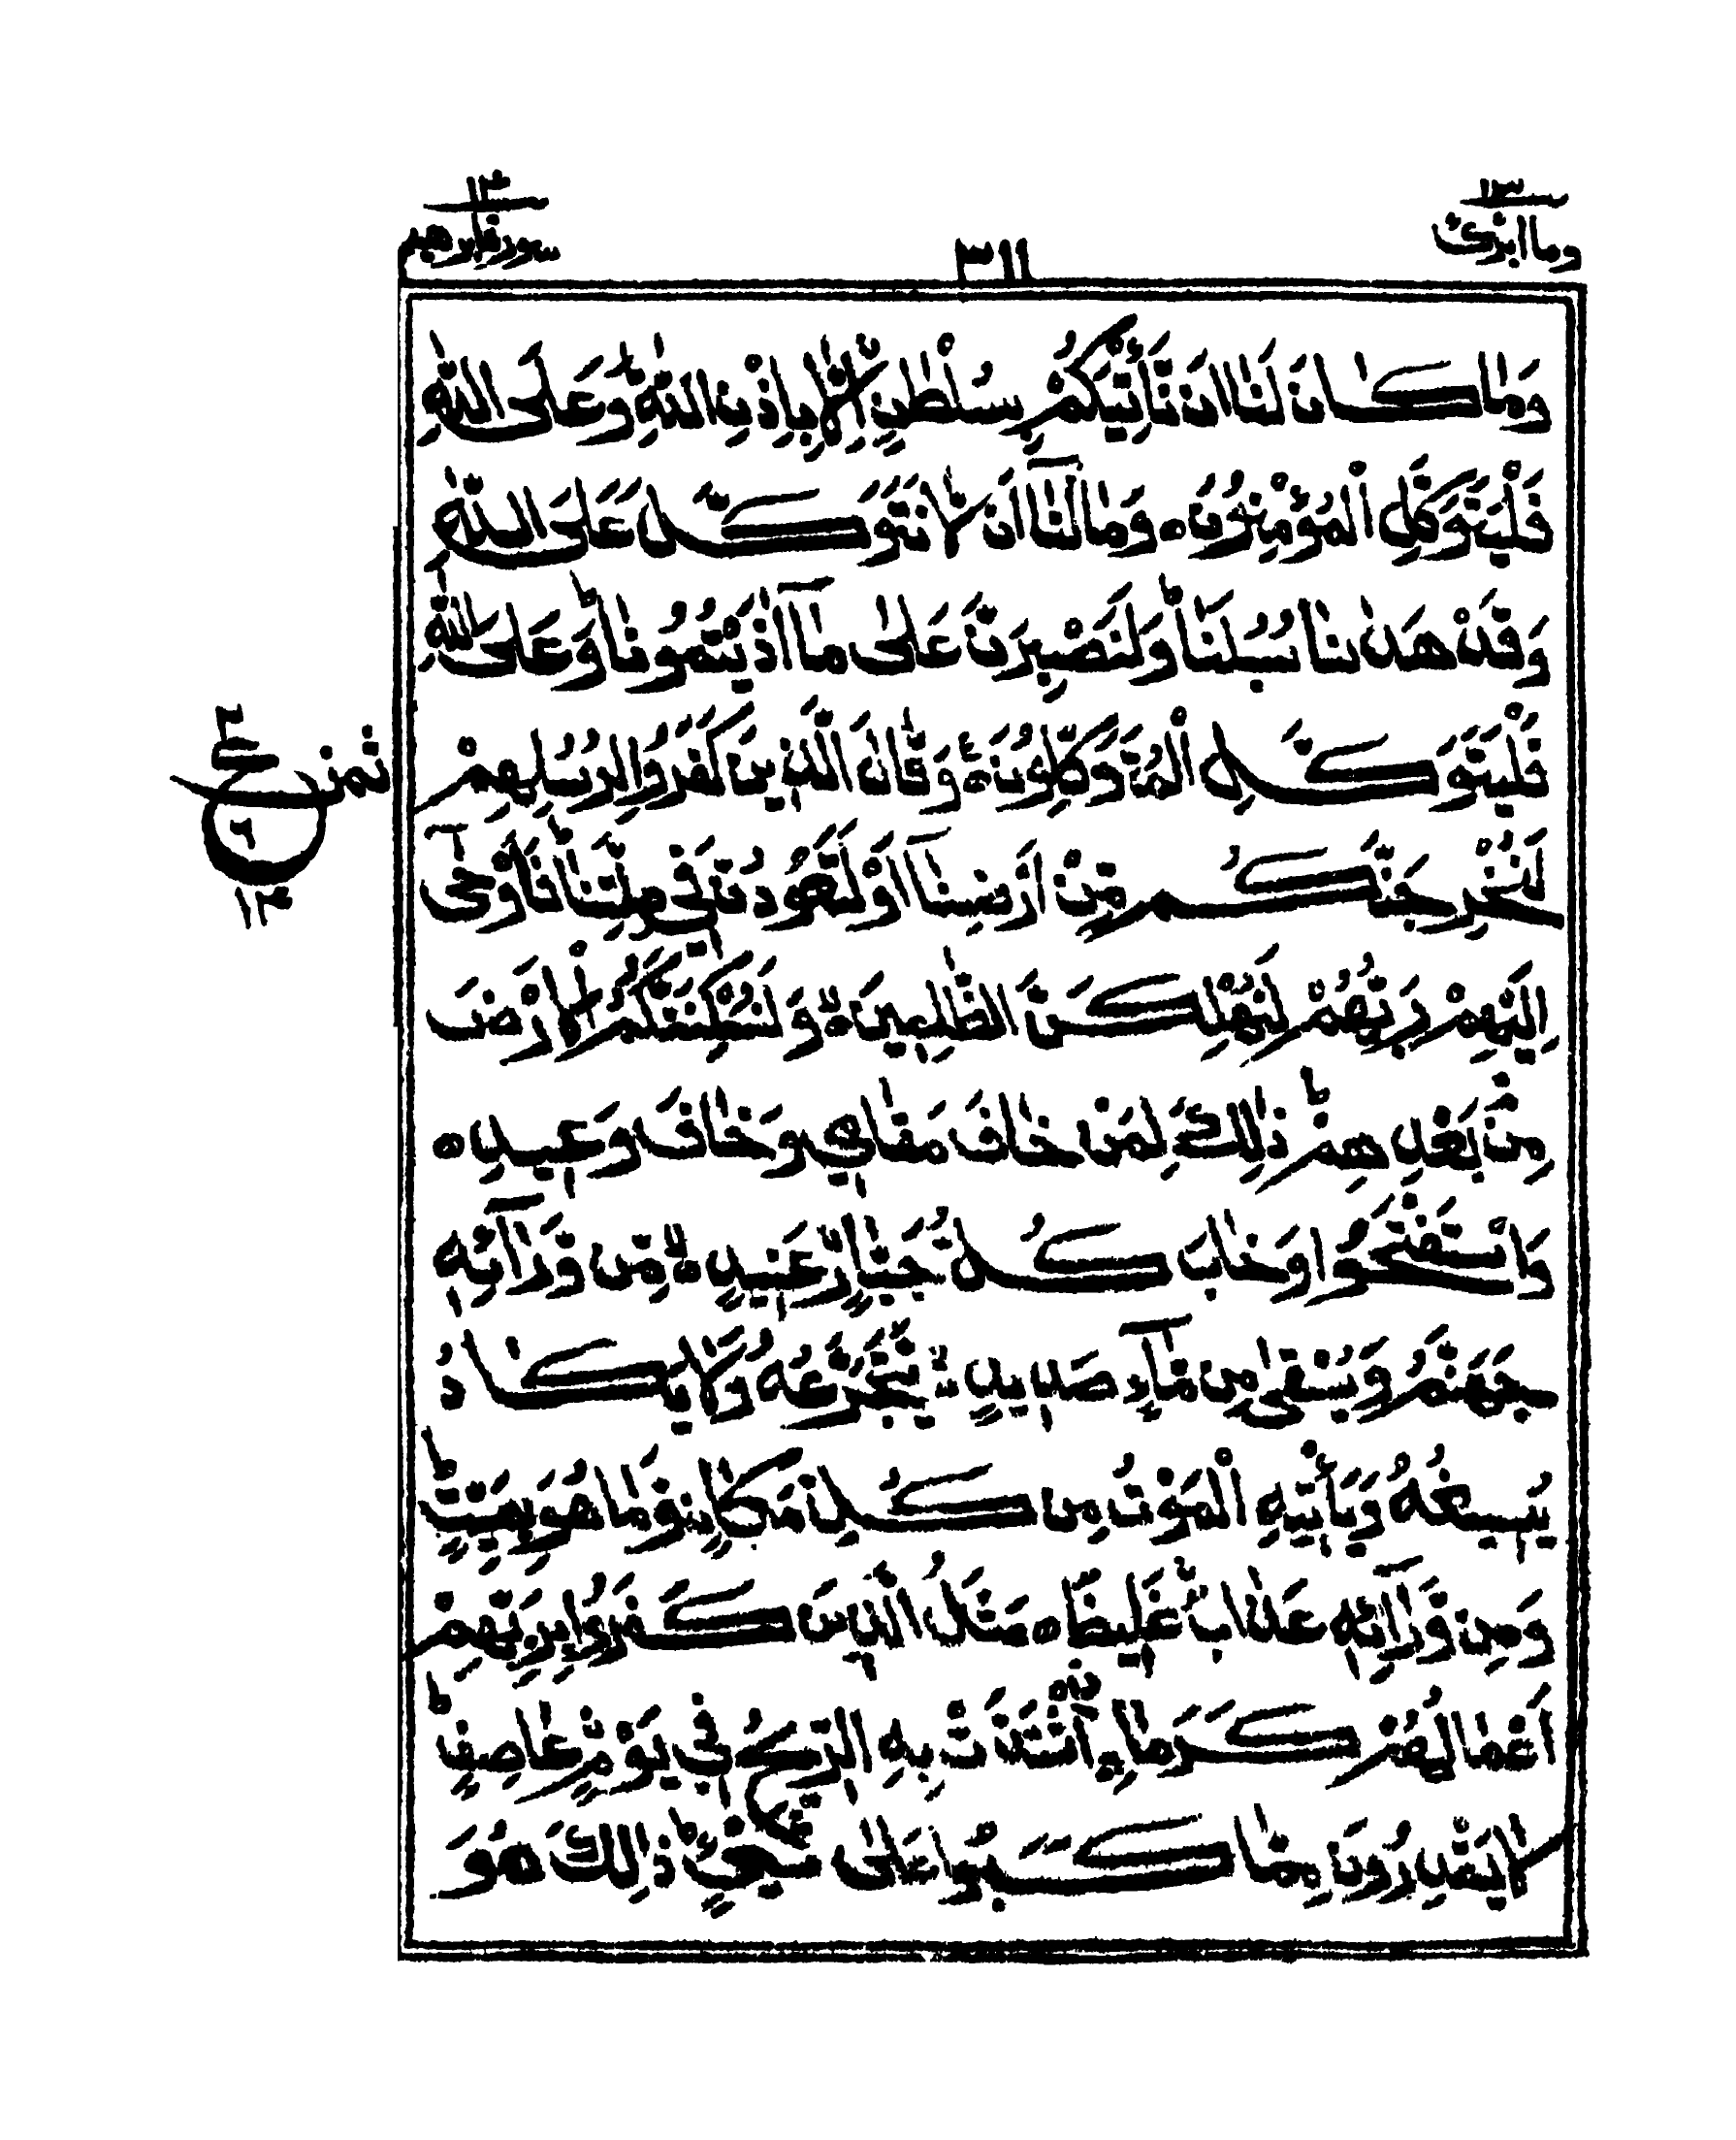 وما ابرئ ١٣
٣١١
سورة ابرهيم ١٤
وَمَا كَانَ لَنَا اَنْ نَّاْتِيَكُمْ بِسُلْطٰنٍ اِلَّا بِاِذْنِ اللّٰهِ ؕ وَعَلَى اللّٰهِ
فَلْيَتَوَكَّلِ الْمُؤْمِنُوْنَ ہ وَمَا لَنَاۤ اَنْ لَّا نَتَوَكَّلَ عَلَى اللّٰهِ
وَقَدْ هَدٰىنَا سُبُلَنَا ؕ وَلَنَصْبِرَنَّ عَلٰى مَاۤ اٰذَيْتُمُوْنَا ؕ وَعَلَى اللّٰهِ
فَلْيَتَوَكَّلِ الْمُتَوَكِّلُوْنَ ہ وَقَالَ الَّذِيْنَ كَفَرُوْا لِرُسُلِهِمْ
لَنُخْرِجَنَّكُمْ مِّنْ اَرْضِنَاۤ اَوْ لَتَعُوْدُنَّ فِيْ مِلَّتِنَا ؕ فَاَوْحٰۤى
اِلَيْهِمْ رَبُّهُمْ لَنُهْلِكَنَّ الظّٰلِمِيْنَ ہ وَلَنُسْكِنَنَّكُمُ الْاَرْضَ
مِنْۢ بَعْدِهِمْ ؕ ذٰلِكَ لِمَنْ خَافَ مَقَامِيْ وَخَافَ وَعِيْدِ ہ
وَاسْتَفْتَحُوْا وَخَابَ كُلُّ جَبَّارٍ عَنِيْدٍ ہ مِّنْ وَّرَآئِهٖ
جَهَنَّمُ وَيُسْقٰى مِنْ مَّآءٍ صَدِيْدٍ ہ يَّتَجَرَّعُهٗ وَلَا يَكَادُ
يُسِيْغُهٗ وَيَاْتِيْهِ الْمَوْتُ مِنْ كُلِّ مَكَانٍ وَّمَا هُوَ بِمَيِّتٍ ؕ
وَمِنْ وَّرَآئِهٖ عَذَابٌ غَلِيْظٌ ہ مَثَلُ الَّذِيْنَ كَفَرُوْا بِرَبِّهِمْ
اَعْمَالُهُمْ كَرَمَادِ ِۨاشْتَدَّتْ بِهِ الرِّيْحُ فِيْ يَوْمٍ عَاصِفٍ ؕ
لَا يَقْدِرُوْنَ مِمَّا كَسَبُوْا عَلٰى شَيْءٍ ؕ ذٰلِكَ هُوَ
ثمن
ع
٦
١٤